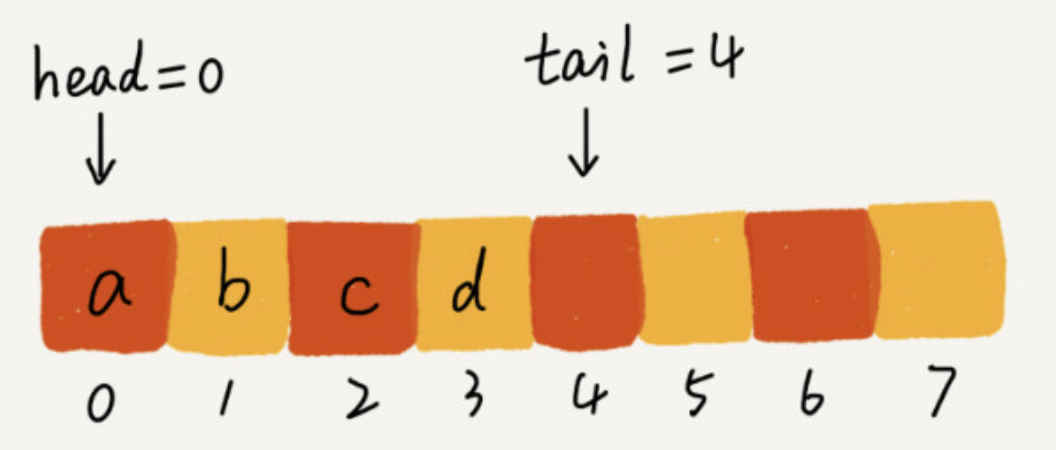 head=0 tail=4
a b c d
0 1 2 3 4 5 6 7